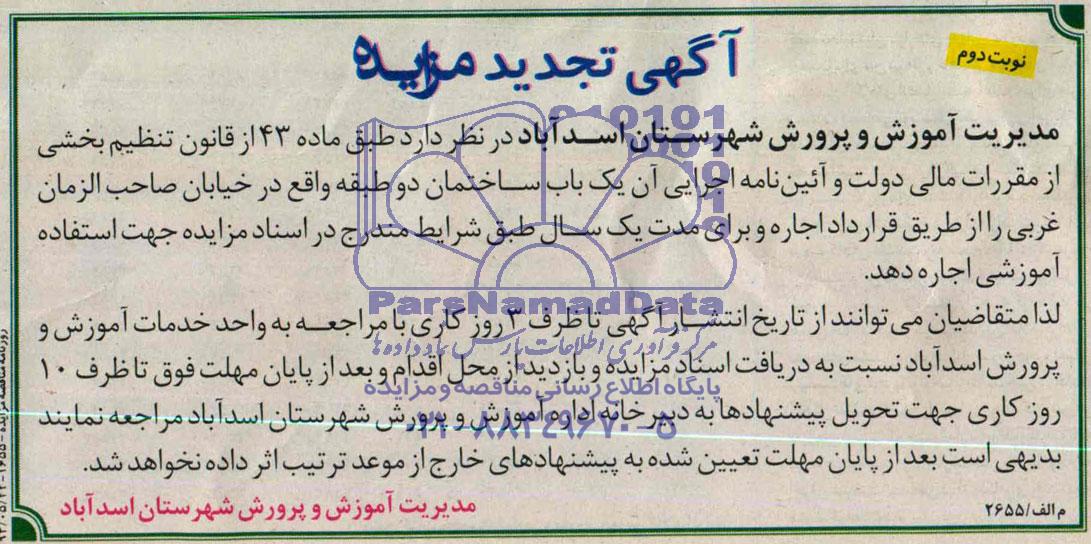 نوبت دوم
آگهی تجدید مزایده
مدیریت آموزش و پرورش شهرستان اسدآباد در نظر دارد طبق ماده ۴۳ از قانون تنظیم بخشی
از مقررات مالی دولت و آئین‌نامه اجرایی آن یک باب ساختمان دو طبقه واقع در خیابان صاحب الزمان
غربی را از طریق قرارداد اجاره و برای مدت یک سال طبق شرایط مندرج در اسناد مزایده جهت استفاده
آموزشی اجاره دهد.
لذا متقاضیان می‌توانند از تاریخ انتشار آگهی تا ظرف ۳ روز کاری با مراجعه به واحد خدمات آموزش و
پرورش اسدآباد نسبت به دریافت اسناد مزایده و بازدید از محل اقدام و بعد از پایان مهلت فوق تا ظرف ۱۰
روز کاری جهت تحویل پیشنهادها به دبیرخانه اداره آموزش و پرورش شهرستان اسدآباد مراجعه نمایند
بدیهی است بعد از پایان مهلت تعیین شده به پیشنهادهای خارج از موعد ترتیب اثر داده نخواهد شد.
مدیریت آموزش و پرورش شهرستان اسدآباد
م الف/۲۶۵۵
ParsNamadData
مرکز فرآوری اطلاعات پارس نماد داده‌ها
پایگاه اطلاع رسانی مناقصه و مزایده
۰۲۱-۸۸۳۴۹۶۷۰-۵